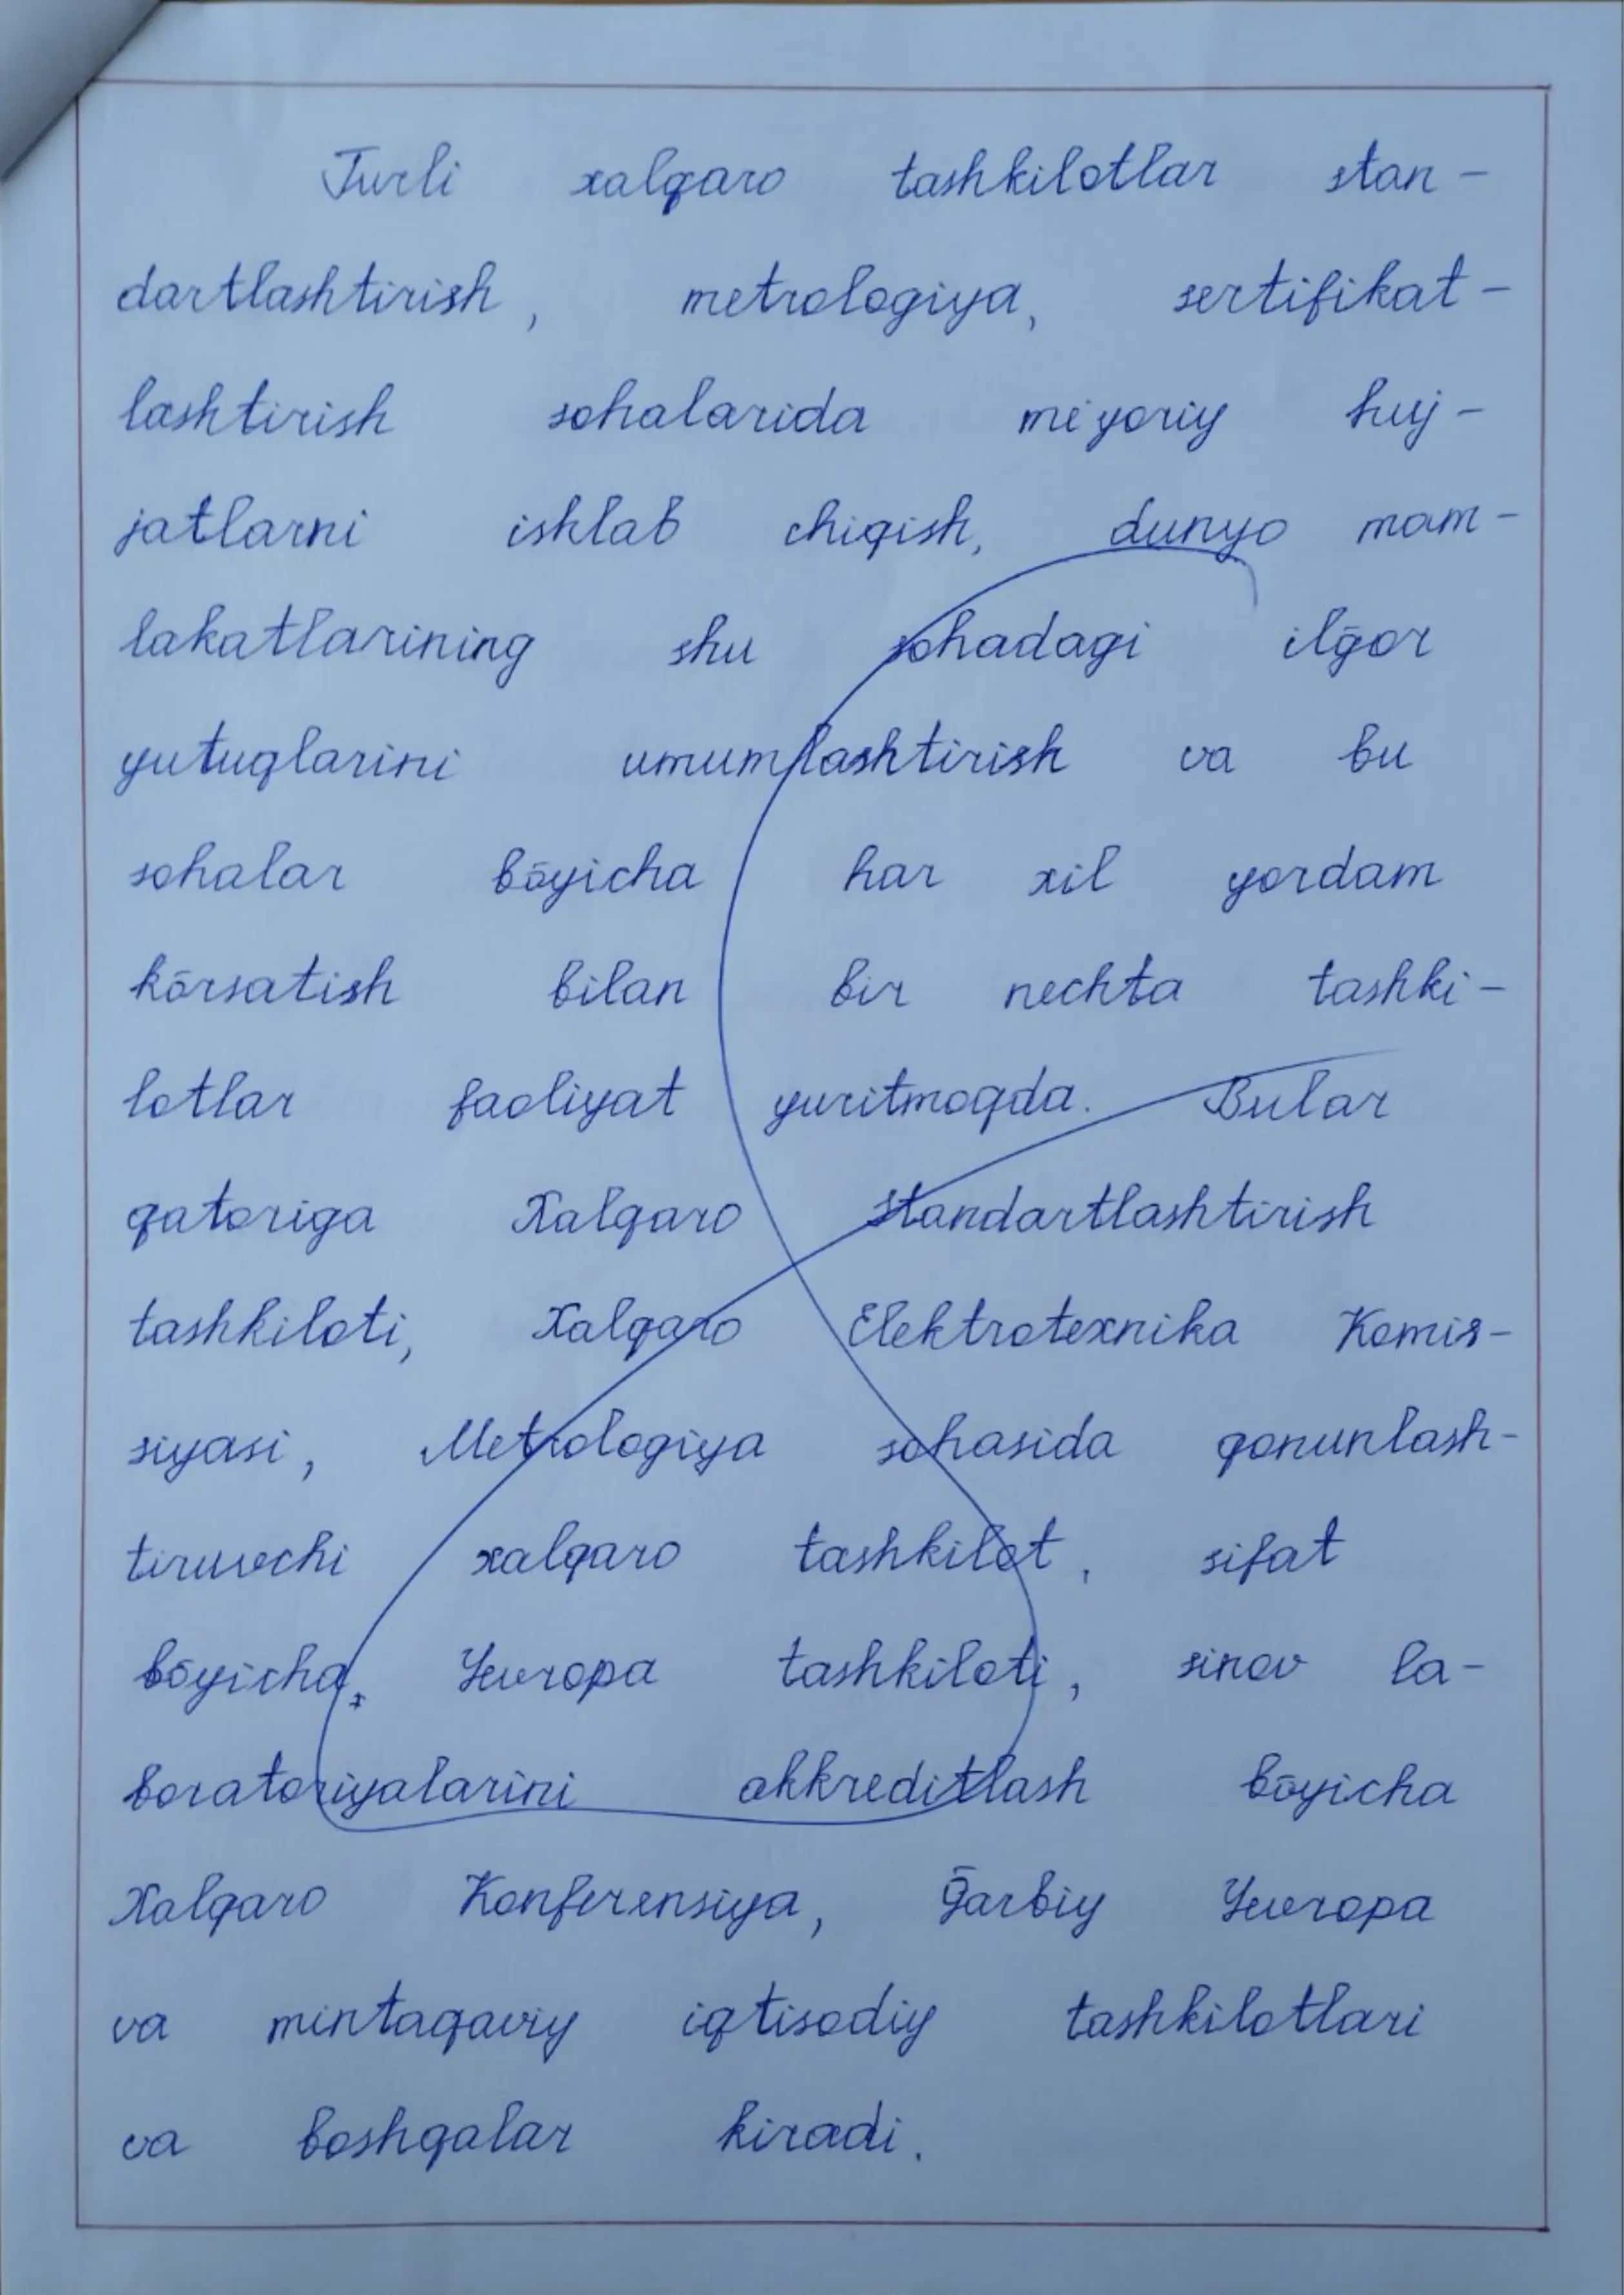 Turli xalqaro tashkilotlar stan-
dartlashtirish, metrologiya, sertifikat-
lashtirish sohalarida me'yoriy huj-
jatlarni ishlab chiqish, dunyo mam-
lakatlarining shu sohadagi ilḡor
yutuqlarini umumlashtirish va bu
sohalar bōyicha har xil yordam
kōrsatish bilan bir nechta tashki-
lotlar faoliyat yuritmoqda. Bular
qatoriga Xalqaro standartlashtirish
tashkiloti, Xalqaro Elektrotexnika Komis-
siyasi, Metrologiya sohasida qonunlash-
tiruvchi xalqaro tashkilot, sifat
bōyicha, Yevropa tashkiloti, sinov la-
boratoriyalarini akkreditlash bōyicha
Xalqaro Konferensiya, Ḡarbiy Yevropa
va mintaqaviy iqtisodiy tashkilotlari
va boshqalar kiradi.